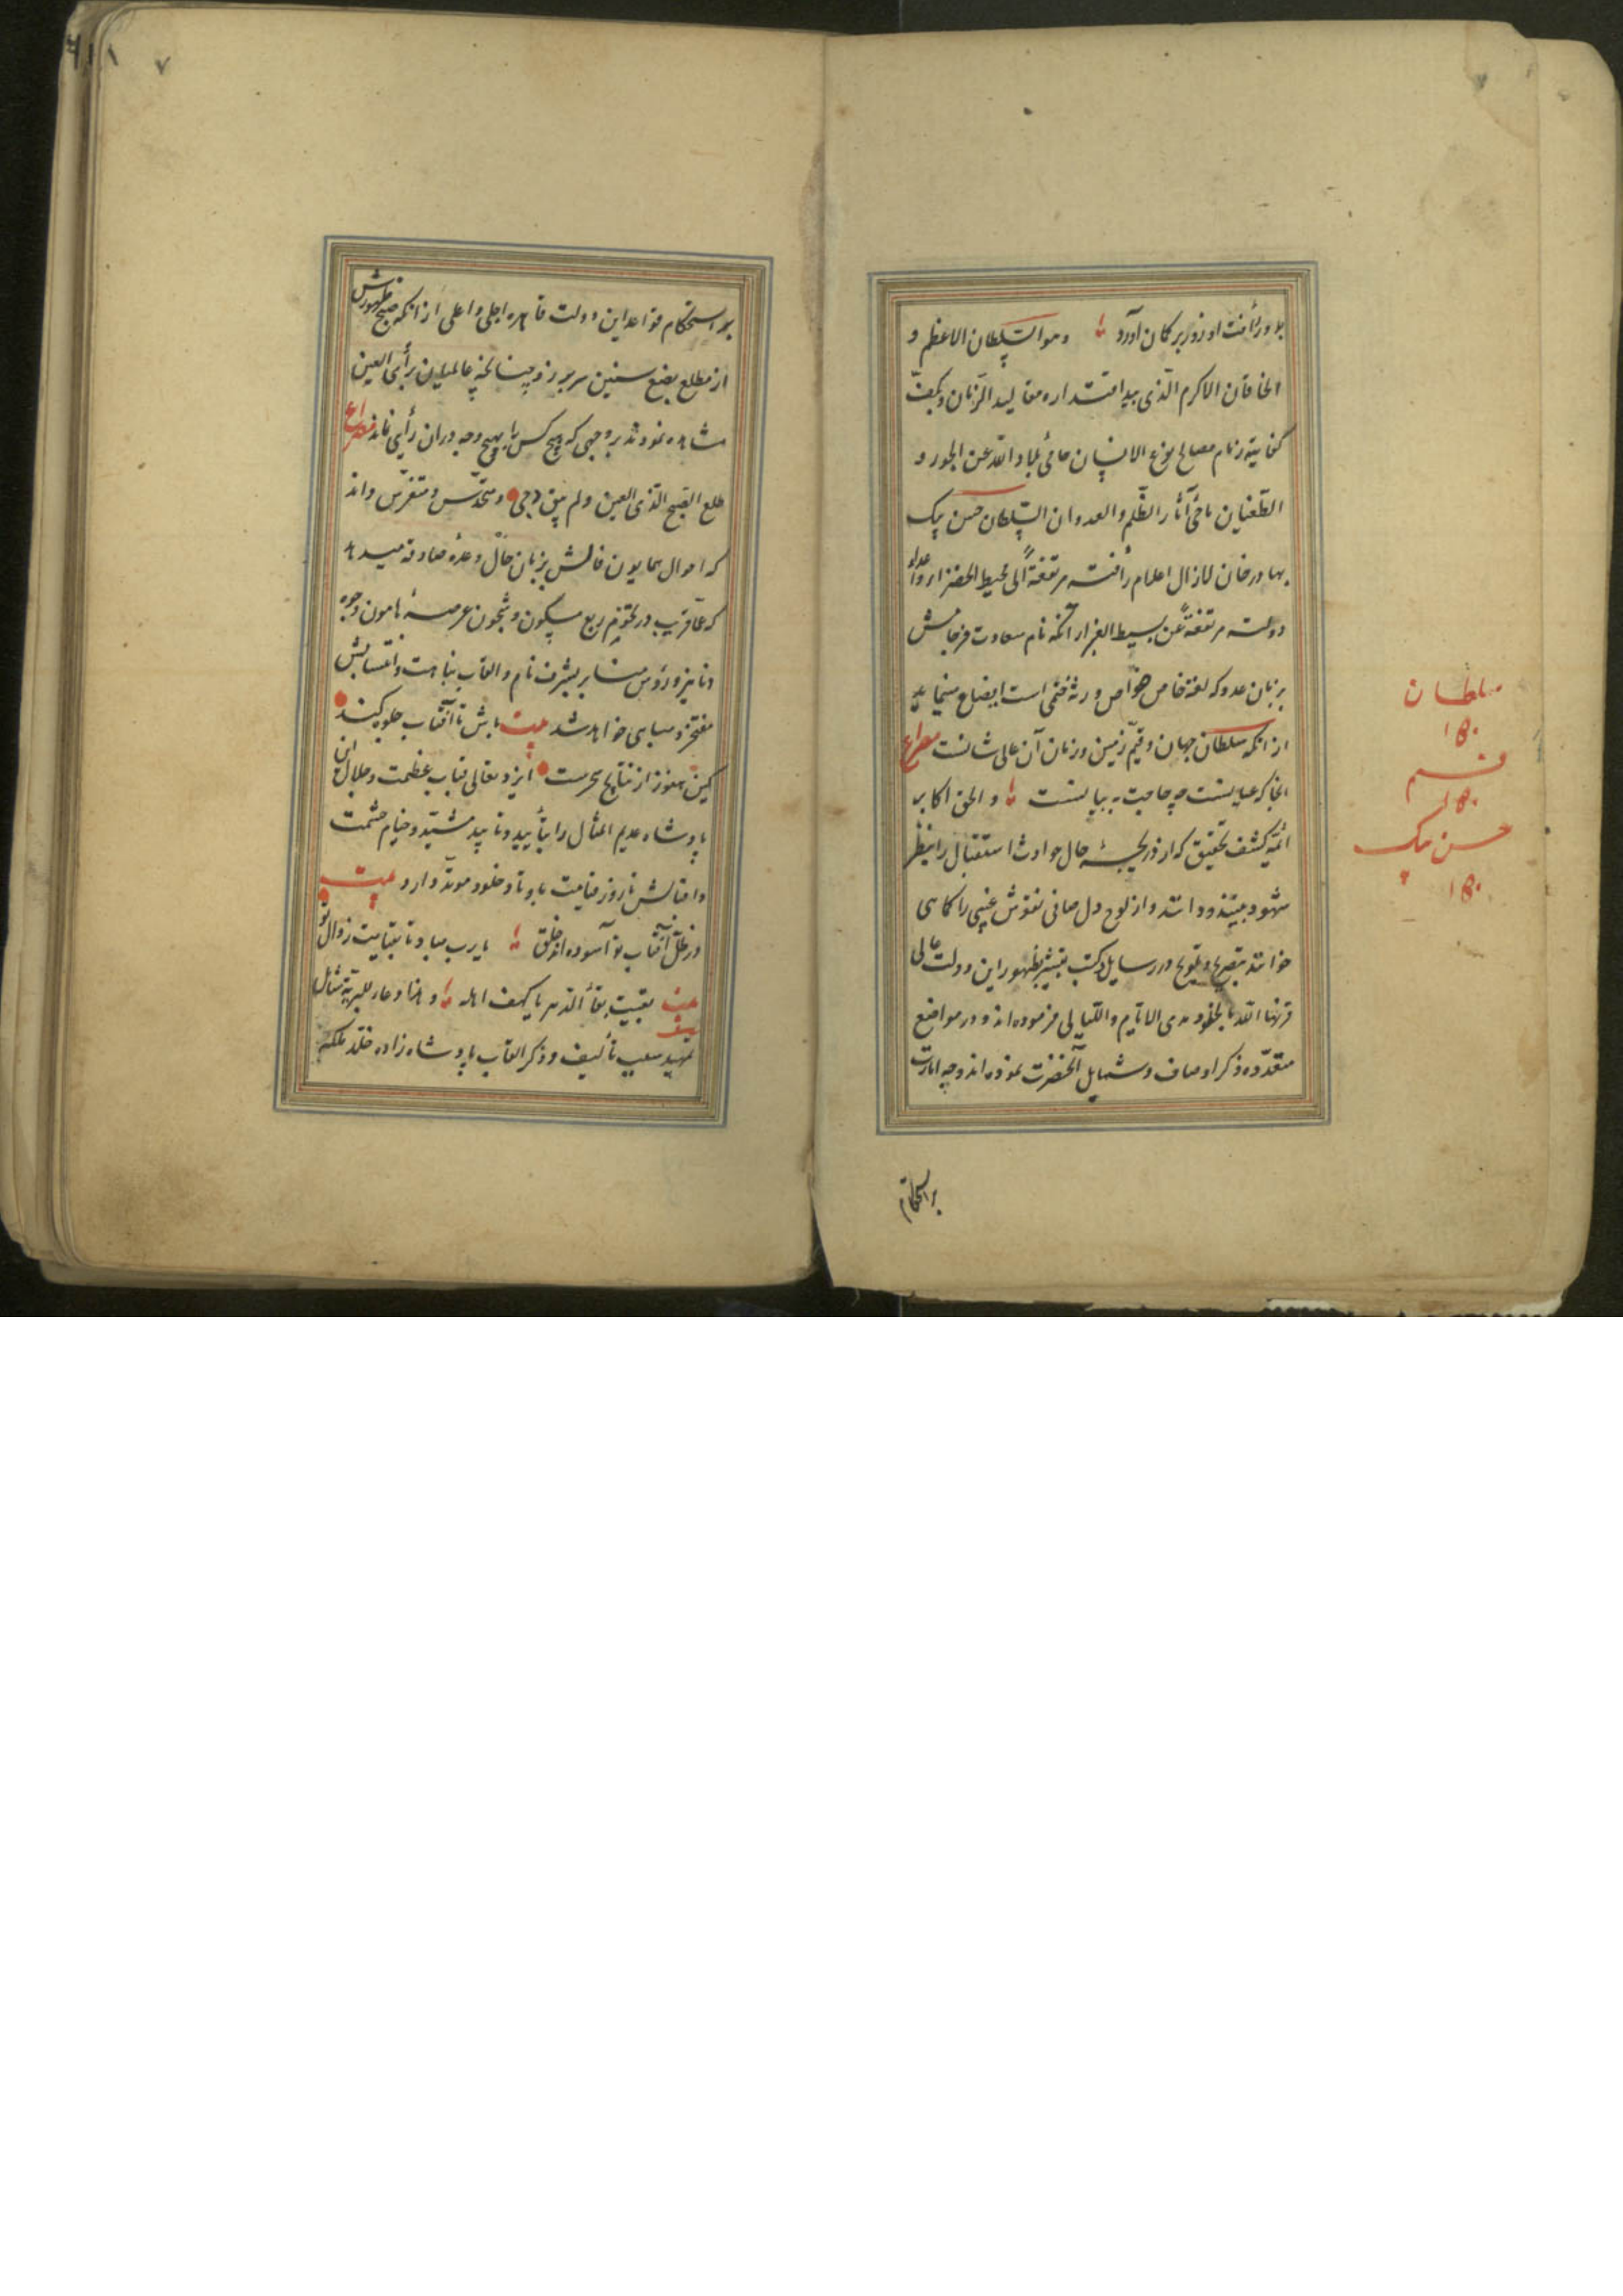 ۷
بدور رأفت او زور بر کمان آورد وهو السلطان الاعظم و
الخاقان الاکرم الّذی بید اقتداره مقالید الزّمان و بکفّ
کفایته زمام مصالح نوع الانسان حامی بلاد الله عن الجور و
الطّغیان ماحی آثار الظّلم و العدوان السّلطان حسن بیک
بهادرخان لازال اعلام رأفته مرتفعةً الی محیط الخضرا و اعداء
دولته مرتفعةً عن بسیط الغبرا آنکه نام سعادت فرجامش
بزبان عدد که لغة خاص خواص ورثهٔ ختمی است ایضاح مینماید
از آنکه سلطان جهان و قیّم زمین و زمان آن عالی شانست مصراع
آنجا که عیانست چه حاجت به بیانست و الحق اکابر
ائمّهٔ کشف و تحقیق که از دریچهٔ حال حوادث استقبال را بنظر
شهود بینند و دانند و از لوح دل صافی نقوش غیبی را کماهی
خوانند بتصریح و تلویح در رسایل و کتب تبشیر بظهور این دولت عالی
قرنها الله بالخلود مدی الایّام واللّیالی فرموده‌اند و در مواضع
متعدّده ذکر اوصاف و شمایل آنحضرت نموده‌اند و چه امارت
بر استحکام
سلطان
۱۵۰
حسن بیک
بر استحکام قواعد این دولت قاهره اجلی و اعلی از آنکه صبح ظهورش
از مطلع بضع سنین سر بر زد چنانکه عالمیان برأی العین
مشاهده نمودند بر وجهی که هیچ کس را بهیچ وجه در آن رأیی نماند مصراع
طلع الصّبح الّذی العین ولم یبق دجی و متحدّس و متفرّس داند
که احوال همایون فالش بزبان حال وعدهٔ صادقه میدهد
که عنقریب در تخوم ربع مسکون و شجون عرصهٔ هامون وجوه
دنانیر و رؤس منابر بشرف نام و القاب نباهت و انتسابش
مفتخر و مباهی خواهد شد بیت باش تا آفتاب جلوه کند
کین هنوز از نتایج سحرست ایزد تعالی قباب عظمت و جلال این
پادشاه عدیم المثال را بتأیید و تابید مشیّد و خیام حشمت
و اقبالش تا روز قیامت باوتاد خلود موتّد دارد بیت
در ظلّ آفتاب تو آسوده‌اند خلق یارب مباد تا بقیامت زوال تو
بیت بقیت بقاء الدّهر یا کهف اهله و هذا دعاء للبریّة شامل
تمهید سبب تألیف و ذکر القاب پادشاه زاده خلّد ملکه